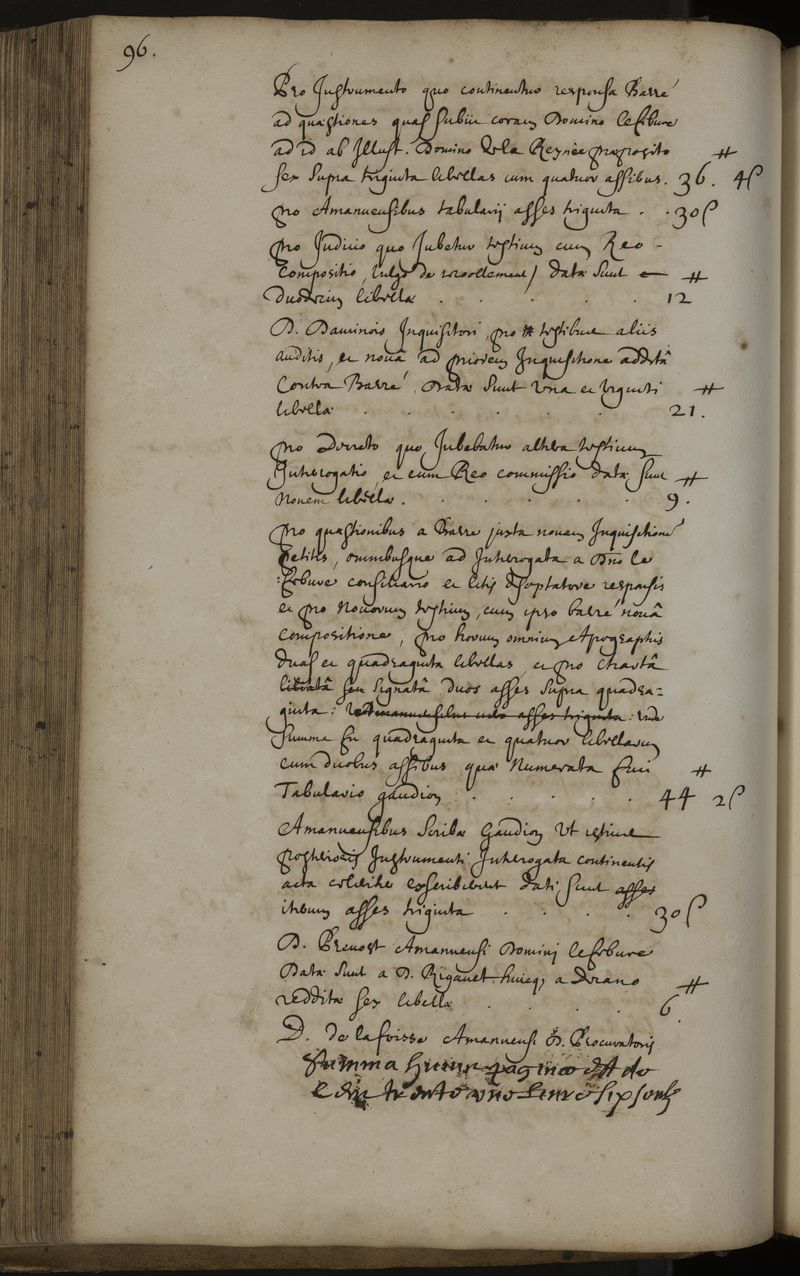 96.
Pro Instrumento quo continentur responsa Barré
ad quæstiones quas subiit coram Domino lefebure
ad id ab Illust. Domino de la Reynie præposito #
sex supra triginta libellas cum quatuor assibus. 36. 4 ſ
pro Amanuensibus tabularij asses triginta . . 30 ſ
pro Judicio quo Jubetur testium cum Reo -
Compositio, (vulgo de recollement) data sunt #
Duodecim libellæ . . . . . 12
D. Dauinois Inquisitori, pro testibus aliis
auditis, et nouâ ad priorem Inquisitione additâ
Contra Barré, Datæ sunt vna et viginti #
libellæ . . . . . . 21.
pro Decreto quo Jubebatur altera testium
Interrogatio, et cum Reo commissio data sunt #
Nouem libellæ . . . . . 9.
pro quæstionibus a Barré juxta nouam Inquisitionē
petitis, omnibusque ad Interrogata a Dno le
febure consiliario et litis disceptatore responsis
et pro Nouorum testium, cum ipso barré nouâ
compositione, pro horum omnium Apographis
duas et quadraginta libellas, et pro chartâ
libratâ seu signatâ duos asses supra quadra=
ginta: et Amanuensibus vero asses triginta: vnde
summa fit quadraginta et quatuor libellarum
cum duobus assibus quæ Numerata fuit #
Tabulario gaudion . . . . . 44 2 ſ
Amanuensibus Scribæ Gaudion Vt istius
posterioris Instrumenti Interrogata continentis
acta celeriter exscriberent dati sunt asses
iterum asses triginta . . . . 30 ſ
D. Preuost Amanuensi Dominj lefebure
Datæ sunt a D. Rigault huicq; a Decano #
redditæ sex libellæ . . . . 6
D. de lafosse Amanuensi D. Procuratoris
Summa huius paginæ est de
cent trente une liure six souls